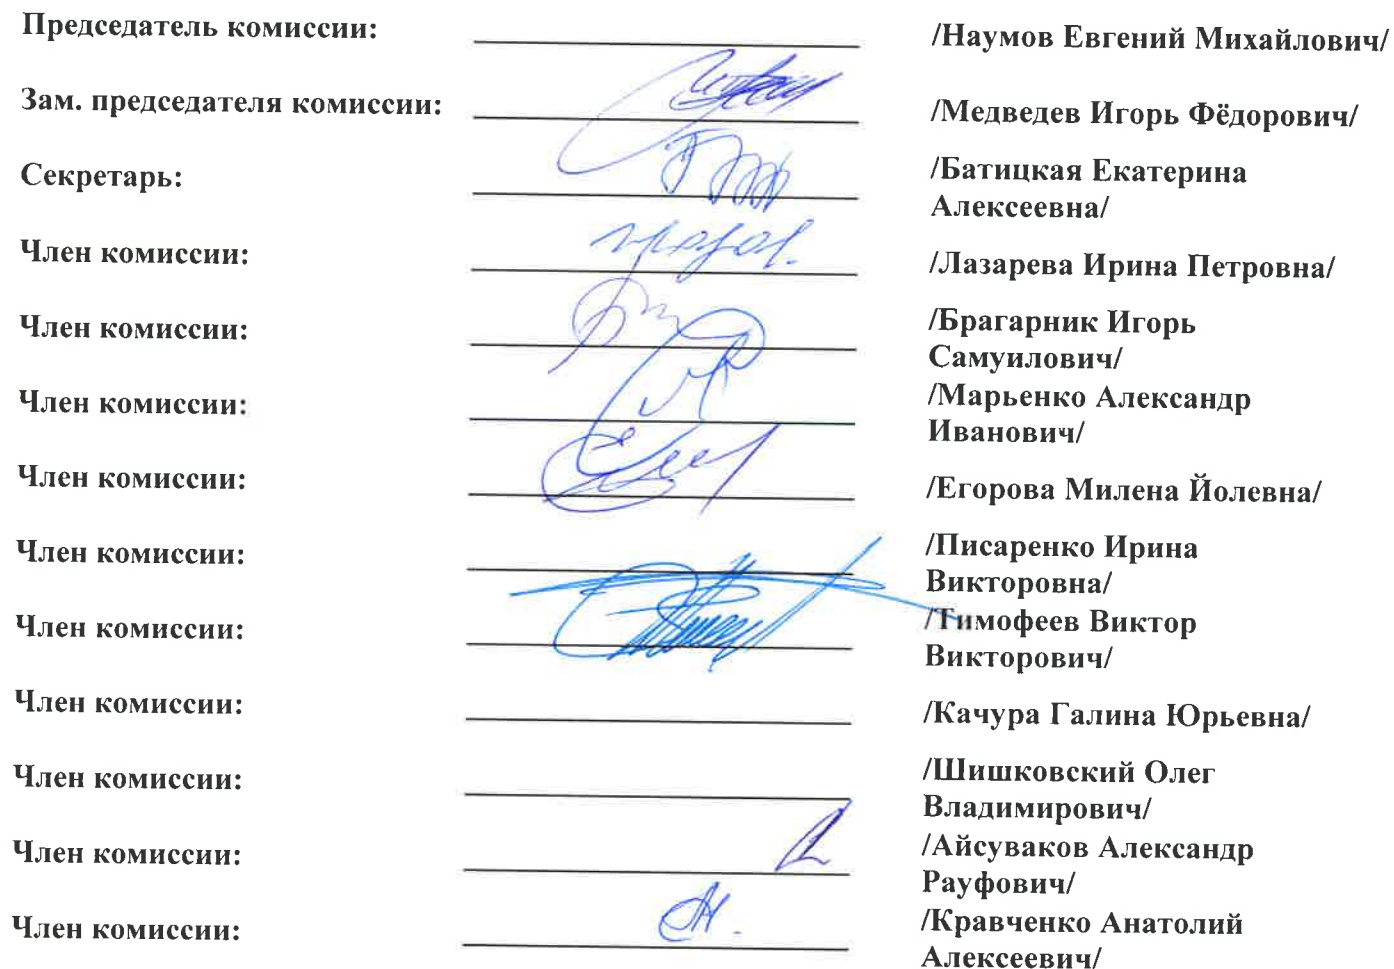 Председатель комиссии: /Наумов Евгений Михайлович/
Зам. председателя комиссии: /Медведев Игорь Фёдорович/
Секретарь: /Батицкая Екатерина
Алексеевна/
Член комиссии: /Лазарева Ирина Петровна/
Член комиссии: /Брагарник Игорь
Самуилович/
Член комиссии: /Марьенко Александр
Иванович/
Член комиссии: /Егорова Милена Йолевна/
Член комиссии: /Писаренко Ирина
Викторовна/
Член комиссии: /Тимофеев Виктор
Викторович/
Член комиссии: /Качура Галина Юрьевна/
Член комиссии: /Шишковский Олег
Владимирович/
Член комиссии: /Айсуваков Александр
Рауфович/
Член комиссии: /Кравченко Анатолий
Алексеевич/